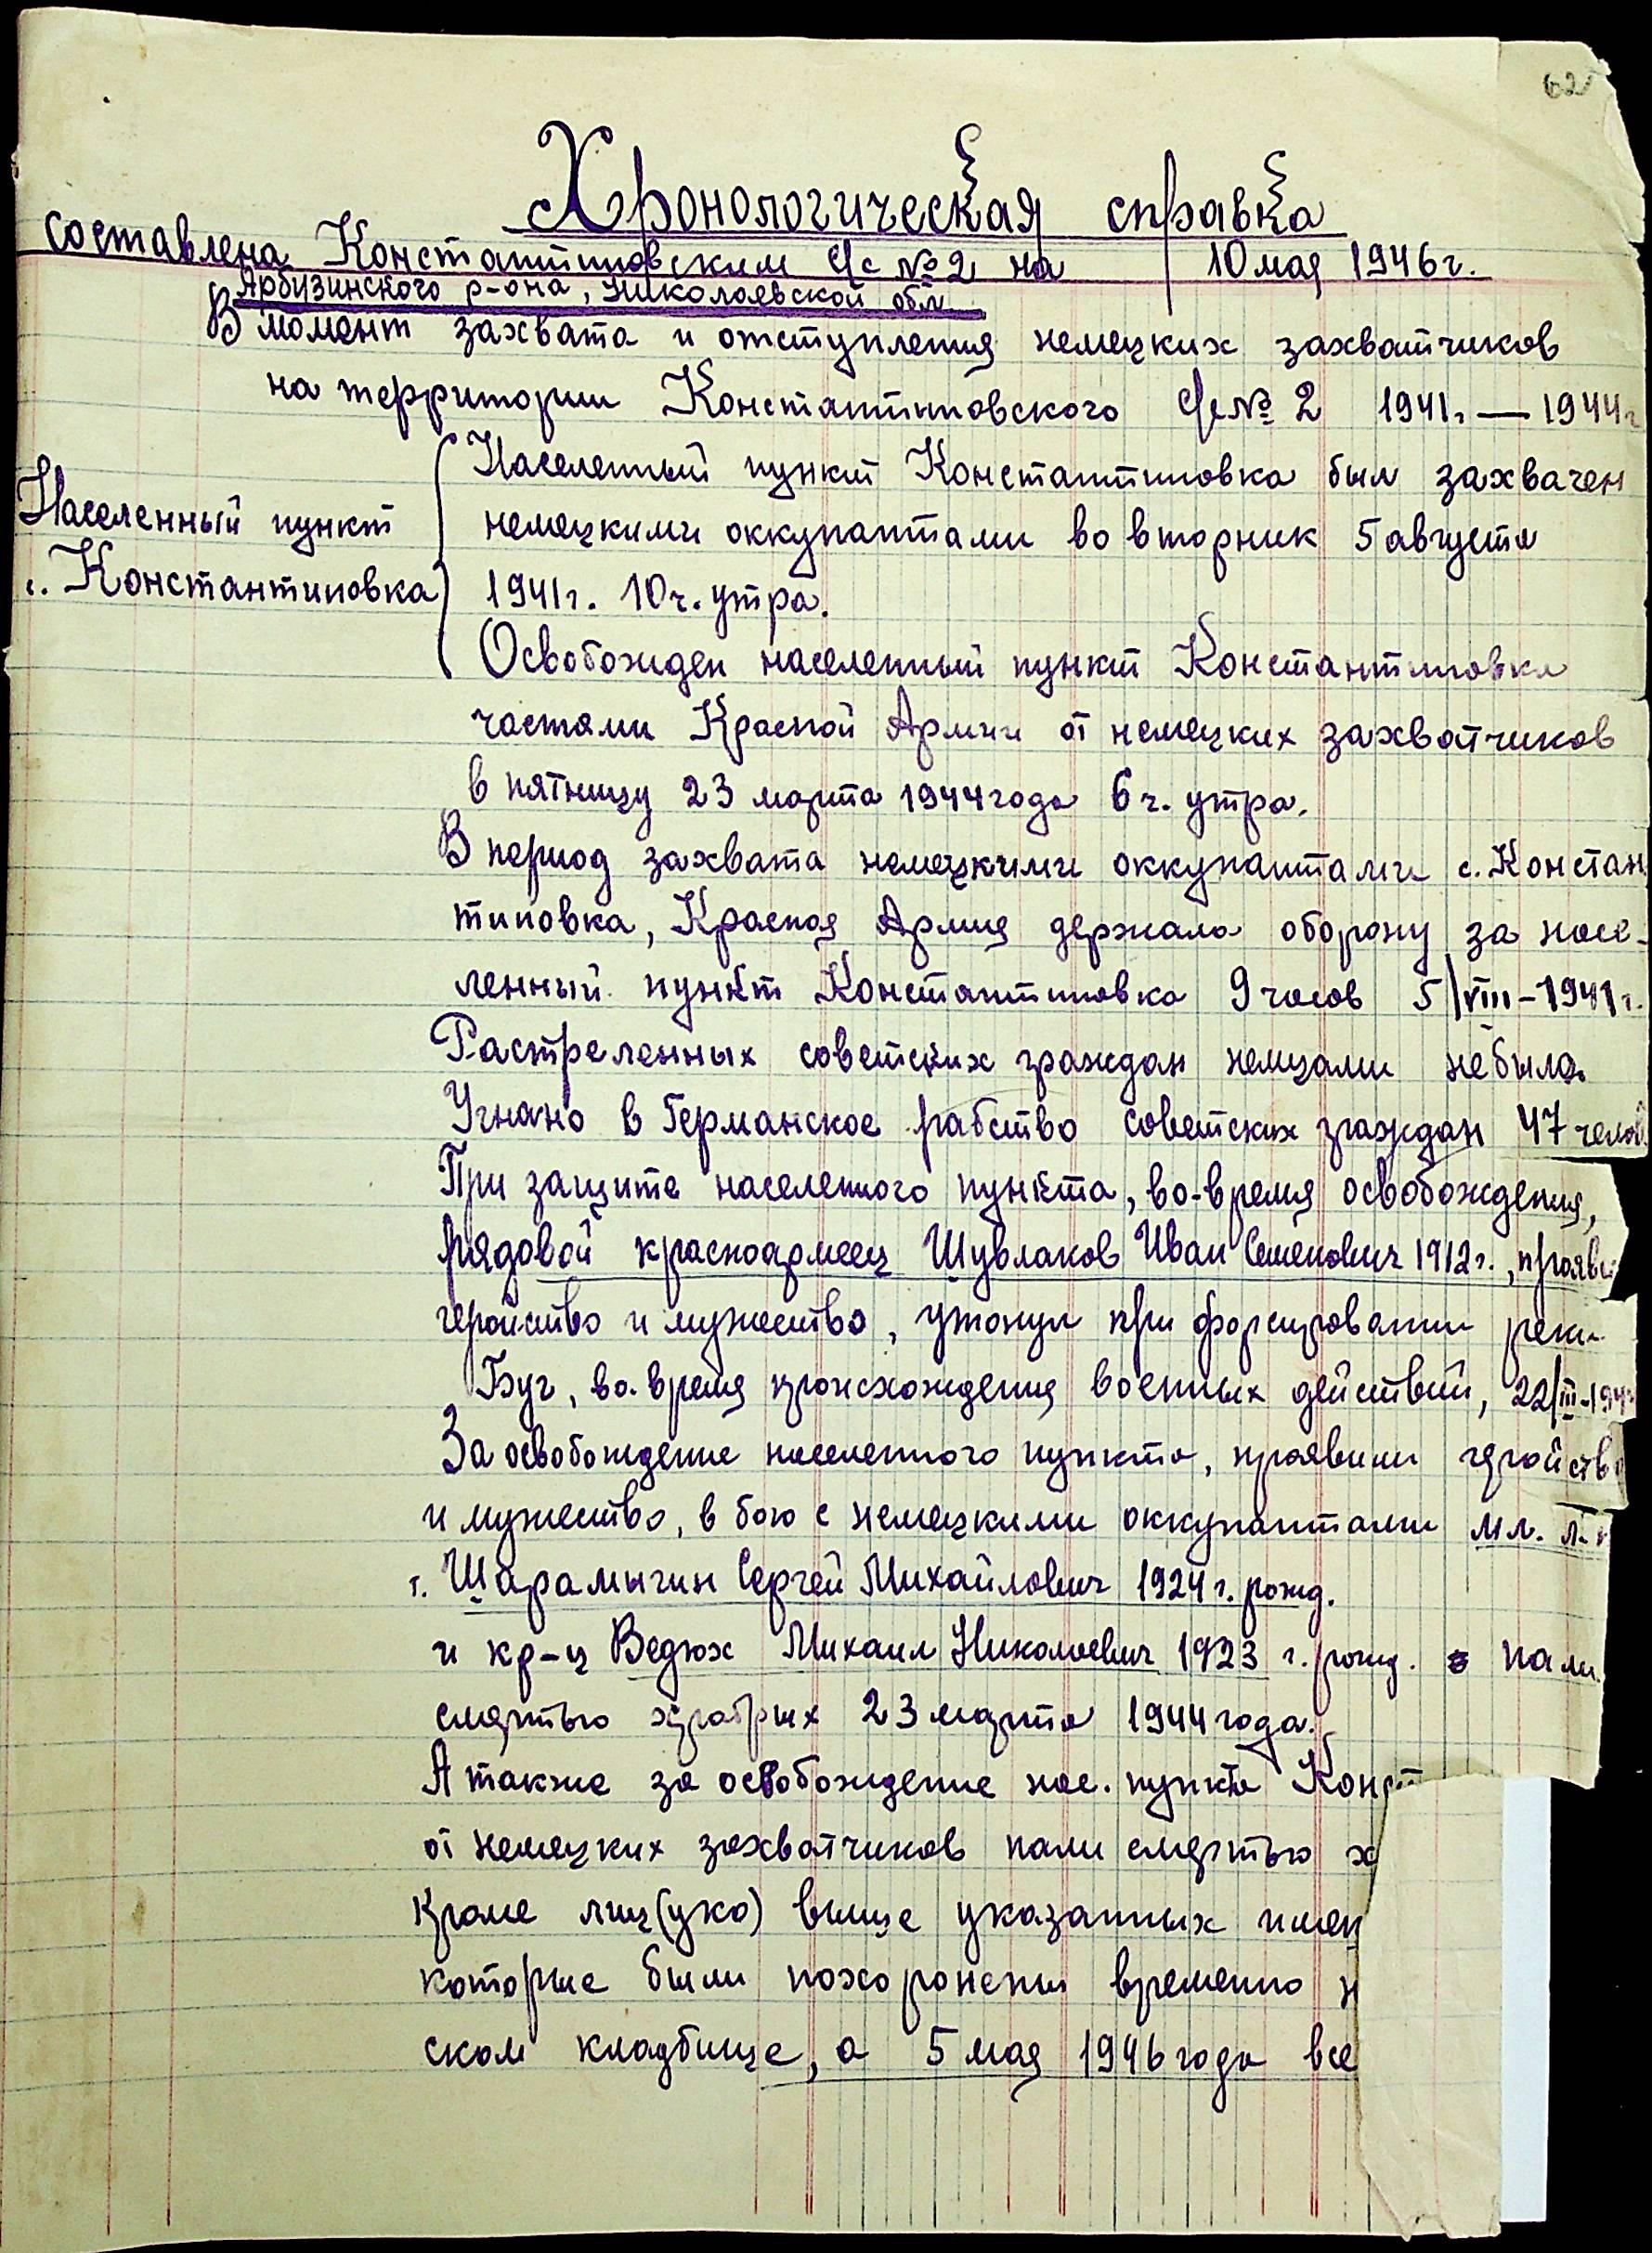 62
Хронологическая справка
составлена Константиновским с/с №2 на 10 мая 1946г.
Арбузинского р-она, Николаевской обл.
В момент захвата и отступления немецких захватчиков
на территории Константиновского с/с №2 1941г. — 1944г
Населенный пункт
с. Константиновка
Населенный пункт Константиновка был захвачен
немецкими оккупантами во вторник 5 августа
1941г. 10ч. утра.
Освобожден населенный пункт Константиновка
частями Красной Армии от немецких захватчиков
в пятницу 23 марта 1944 года 6 ч. утра.
В период захвата немецкими оккупантами с. Констан
тиновка, Красная Армия держала оборону за насе-
ленный пункт Константиновка 9 часов 5/VIII-1941г.
Растреленных советских граждан немцами небыло.
Угнано в Германское рабство советских граждан 47 челов.
При защите населенного пункта, во-время освобождения,
рядовой красноармеец Шувлаков Иван Семенович 1912г., прояви
геройство и мужество, утонул при форсировании реки
Буг, во-время происхождения военных действий, 22/III-194
За освобождение населенного пункта, проявили геройство
и мужество, в бою с немецкими оккупантами мл. л-
т. Шарамыгин Сергей Михайлович 1924г. рожд.
и кр-ц Ведюх Михаил Николаевич 1923 г. рожд. пали
смертью храбрых 23 марта 1944 года.
А также за освобождение нас. пункта Конст
от немецких захватчиков пали смертью х
кроме лиц(ука) выше указанных имен
которые были похоронены временно н
ском кладбище, а 5 мая 1946 года все